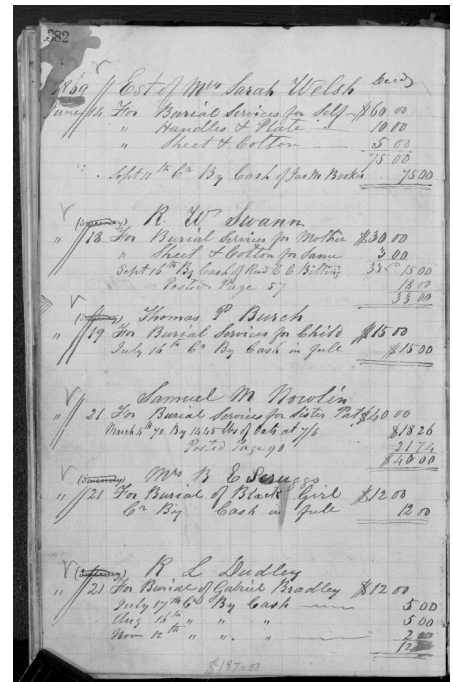 382
1869 Est of Mrs Sarah Welsh Decd
June 14 For Burial Services for Self $60 00
" Handles & Plate 10 00
" Sheet & Cotton 5 00
75 00
Sept 11th Cr By Cash of Jas M Booker 75 00
R. W Swann
" 18 For Burial Services for Mother $30 00
" Sheet & Cotton for Same 3 00
Sept 16th By Cash of Rev C C Bitting 33 Cr 15 00
Posted Page 57 18 00
33 00
Thomas P Burch
" 19 For Burial Services for Child $15 00
July 14th Cr By Cash in full $15 00
Samuel M Nowlin
" 21 For Burial Services for Sister Pat $40 00
March 4th 70 By 1445 lbs of Oats at 7/6 $18 26
Posted Page 90 21 74
$40 00
Mrs B E Scruggs
" 21 For Burial of Black Girl $12 00
Cr By Cash in full 12 00
R L Dudley
" 21 For Burial of Gabriel Bradley $12 00
July 17th Cr By Cash 5 00
Aug 16th " " " 5 00
Nov 12th " " " 2 00
12
$187.00